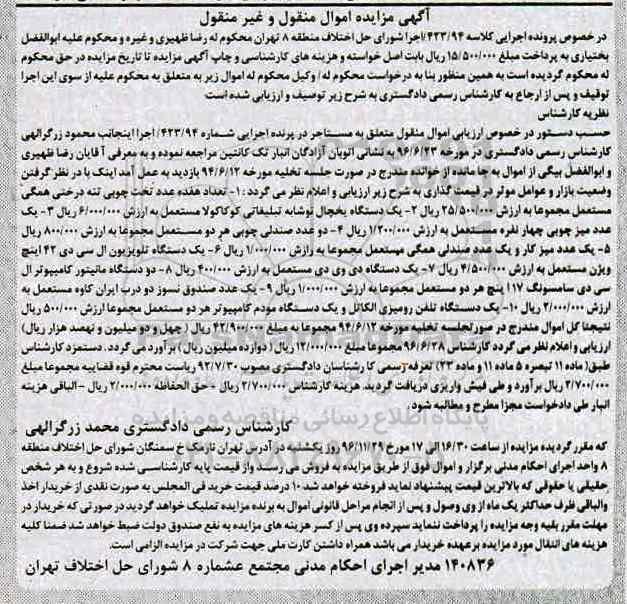 آگهی مزایده اموال منقول و غیر منقول
در خصوص پرونده اجرایی کلاسه ۴۲۳/۹۴/اجرا شورای حل اختلاف منطقه ۸ تهران محکوم له رضا ظهیری و غیره و محکوم علیه ابوالفضل
بختیاری به پرداخت مبلغ ۱۵/۵۰۰/۰۰۰ ریال بابت اصل خواسته و هزینه های کارشناسی و چاپ آگهی مزایده تا تاریخ مزایده در حق محکوم
له محکوم گردیده است به همین منظور بنا به درخواست محکوم له / وکیل محکوم له اموال زیر به متعلق به محکوم علیه از سوی این اجرا
توقیف و پس از ارجاع به کارشناس رسمی دادگستری به شرح زیر توصیف و ارزیابی شده است.
نظریه کارشناس
حسب دستور در خصوص ارزیابی اموال منقول متعلق به مستاجر در پرنده اجرایی شماره ۴۲۳/۹۴/ اجرا اینجانب محمود زرگرالهی
کارشناس رسمی دادگستری در مورخه ۹۶/۶/۲۳ به نشانی اتوبان آزادگان انبار تک کانتین مراجعه نموده و به معرفی آقایان رضا ظهیری
و ابوالفضل بیگی از اموال به جا مانده از خوانده مندرج در صورت جلسه تخلیه مورخه ۹۴/۶/۱۲ بازدید به عمل آمد اینک با در نظر گرفتن
وضعیت بازار و عوامل موثر در قیمت گذاری به شرح زیر ارزیابی و اعلام نظر می گردد : ۱- تعداد هفده عدد تخت چوبی تنه درختی همگی
مستعمل مجموعا به ارزش ۲۵/۵۰۰/۰۰۰ ریال ۲- یک دستگاه یخچال نوشابه تبلیغاتی کوکاکولا مستعمل به ارزش ۶/۰۰۰/۰۰۰ ریال ۳- یک
عدد میز چوبی چهار نفره مستعمل به ارزش ۱/۲۰۰/۰۰۰ ریال ۴- دو عدد صندلی چوبی هر دو مستعمل مجموعا به ارزش ۸۰۰/۰۰۰ ریال
۵- یک عدد میز کار و یک عدد صندلی همگی مستعمل مجموعا به ارزش ۱/۰۰۰/۰۰۰ ریال ۶- یک دستگاه تلویزیون ال سی دی ۴۲ اینچ
ویژن مستعمل به ارزش ۴/۵۰۰/۰۰۰ ریال ۷- یک دستگاه دی وی دی مستعمل به ارزش ۴۰۰/۰۰۰ ریال ۸- دو دستگاه مانیتور کامپیوتر ال
سی دی سامسونگ ۱۷ اینچ هر دو مستعمل مجموعا به ارزش ۱/۰۰۰/۰۰۰ ریال ۹- یک عدد صندوق نسوز دو درب ایران کاوه مستعمل به
ارزش ۲/۰۰۰/۰۰۰ ریال ۱۰- یک دستگاه تلفن رومیزی الکاتل و یک دستگاه مودم کامپیوتر هر دو مستعمل مجموعا ارزش ۵۰۰/۰۰۰ ریال
نتیجتا کل اموال مندرج در صورتجلسه تخلیه مورخه ۹۴/۶/۱۲ مجموعا به مبلغ ۴۲/۹۰۰/۰۰۰ ریال (چهل و دو میلیون و نهصد هزار ریال)
ارزیابی و اعلام نظر می گردد کارشناس ۹۶/۶/۲۸ مجموعا مبلغ ۱۲/۰۰۰/۰۰۰ ریال (دوازده میلیون ریال) برآورد می گردد. دستمزد کارشناس
طبق (ماده ۱۱ تبصره ۵ ماده ۱۱ و ماده ۲۳) تعرفه رسمی کارشناسان دادگستری مصوب ۹۲/۷/۳۰ ریاست محترم قوه قضاییه مجموعا مبلغ
۲/۷۰۰/۰۰۰ ریال برآورد و طی فیش واریزی دریافت گردید. هزینه کارشناس ۲/۷۰۰/۰۰۰ ریال - حق الحفاظه ۲/۰۰۰/۰۰۰ ریال -الباقی هزینه
انبار طی دادخواست مجزا مطرح و مطالبه شود.
کارشناس رسمی دادگستری محمد زرگرالهی
که مقرر گردیده مزایده از ساعت ۱۶/۳۰ الی ۱۷ مورخ ۹۶/۱۱/۲۹ روز یکشنبه در آدرس تهران نارمک خ سمنگان شورای حل اختلاف منطقه
۸ واحد اجرای احکام مدنی برگزار و اموال فوق از طریق مزایده به فروش می رسد و از قیمت پایه کارشناسی شده شروع و به هر شخص
حقیقی یا حقوقی که بالاترین قیمت پیشنهاد نماید فروخته خواهد شد ۱۰ درصد قیمت خرید فی المجلس به صورت نقدی از خریدار اخذ
والباقی ظرف حداکثر یک ماه از وی وصول و پس از انجام مراحل قانونی اموال به برنده مزایده تملیک خواهد گردید در صورتی که خریدار در
مهلت مقرر بقیه وجه مزایده را پرداخت ننماید سپرده وی پس از کسر هزینه های مزایده به نفع صندوق دولت ضبط خواهد شد ضمنا کلیه
هزینه های انتقال مورد مزایده برعهده خریدار می باشد همراه داشتن کارت ملی جهت شرکت در مزایده الزامی است.
۱۴۰۸۳۶ مدیر اجرای احکام مدنی مجتمع عشماره ۸ شورای حل اختلاف تهران
پایگاه اطلاع رسانی مناقصه و مزایده